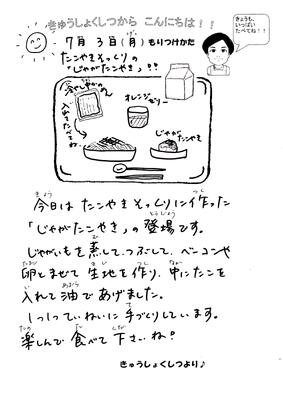 きゅうしょくしつから こんにちは!!
きょうも、
いっぱい
たべてね!!
7月 3日(月)もりつけかた
たこやきそっくりの
「じゃがたこやき」!!
冷やし中かのめん
入れてたべてね。
オレンジゼリー
じゃがたこやき
今日は たこやきそっくりに作った
「じゃがたこやき」の登場です。
じゃがいもを蒸して、つぶして、ベーコンや
卵とまぜて生地を作り、中にたこを
入れて油であげました。
1つ1つていねいに手づくりしています。
楽しんで食べて下さいね♡
きゅうしょくしつより♪